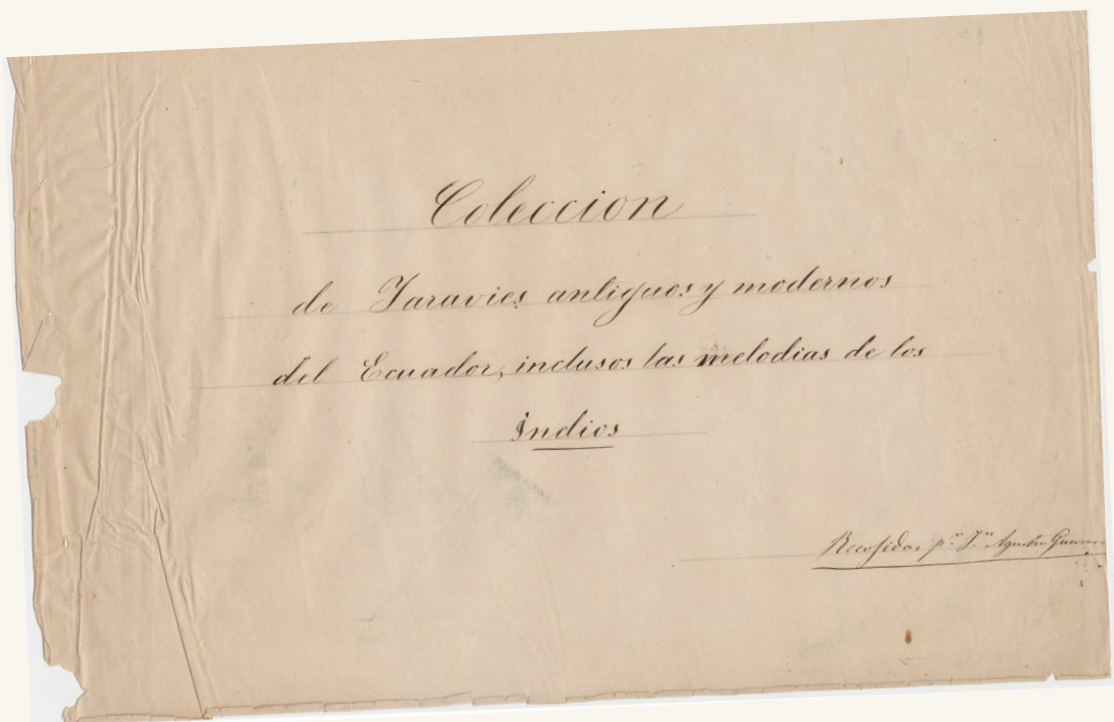 Coleccion
de Yaravies antiguos y modernos
del Ecuador, inclusos las melodias de los
Indios
Recojidos p.r J.n Agustin Guerrero